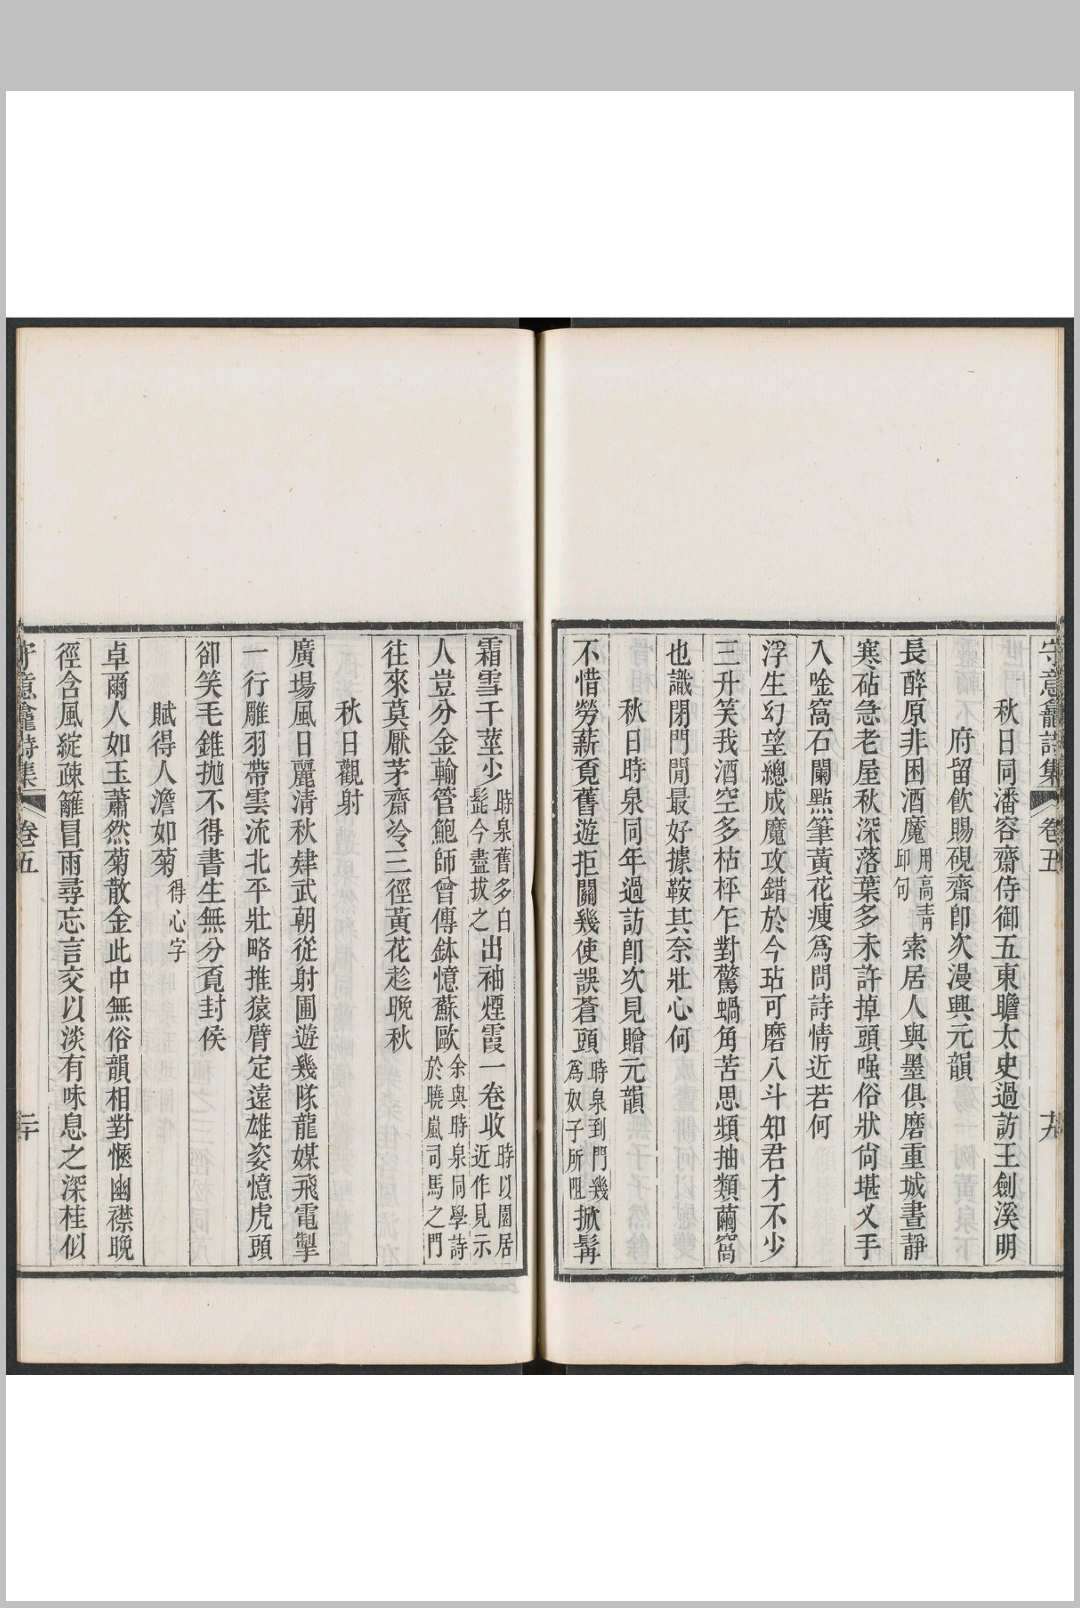 守意龕詩集 卷五 十九
秋日同潘容齋侍御五東瞻太史過訪王劍溪明
府留飲賜硯齋卽次漫興元韻
長醉原非困酒魔用高靑邱句索居人與墨俱磨重城晝靜
寒砧急老屋秋深落葉多未許掉頭嗤俗狀尙堪乂手
入唫窩石闌點筆黃花瘦爲問詩情近若何
浮生幻望總成魔攻錯於今玷可磨八斗知君才不少
三升笑我酒空多枯枰乍對驚蝸角苦思頻抽類繭窩
也識閉門閒最好據鞍其奈壯心何
秋日時泉同年過訪卽次見贈元韻
不惜勞薪覓舊遊拒關幾使誤蒼頭時泉到門幾爲奴子所阻掀髯
霜雪千莖少時泉舊多白髭今盡拔之出袖煙霞一卷收時以園居近作見示
人豈分金輸管鮑師曾傳鉢憶蘇歐余與時泉同學詩於曉嵐司馬之門
往來莫厭茅齋冷三徑黃花趁晚秋
秋日觀射
廣場風日麗淸秋肄武朝從射圃遊幾隊龍媒飛電掣
一行雕羽帶雲流北平壯略推猿臂定遠雄姿憶虎頭
卻笑毛錐拋不得書生無分覓封侯
賦得人澹如菊得心字
卓爾人如玉蕭然菊散金此中無俗韻相對愜幽襟晚
徑含風綻疎籬冒雨尋忘言交以淡有味息之深桂似
守意龕詩集 卷五 二十